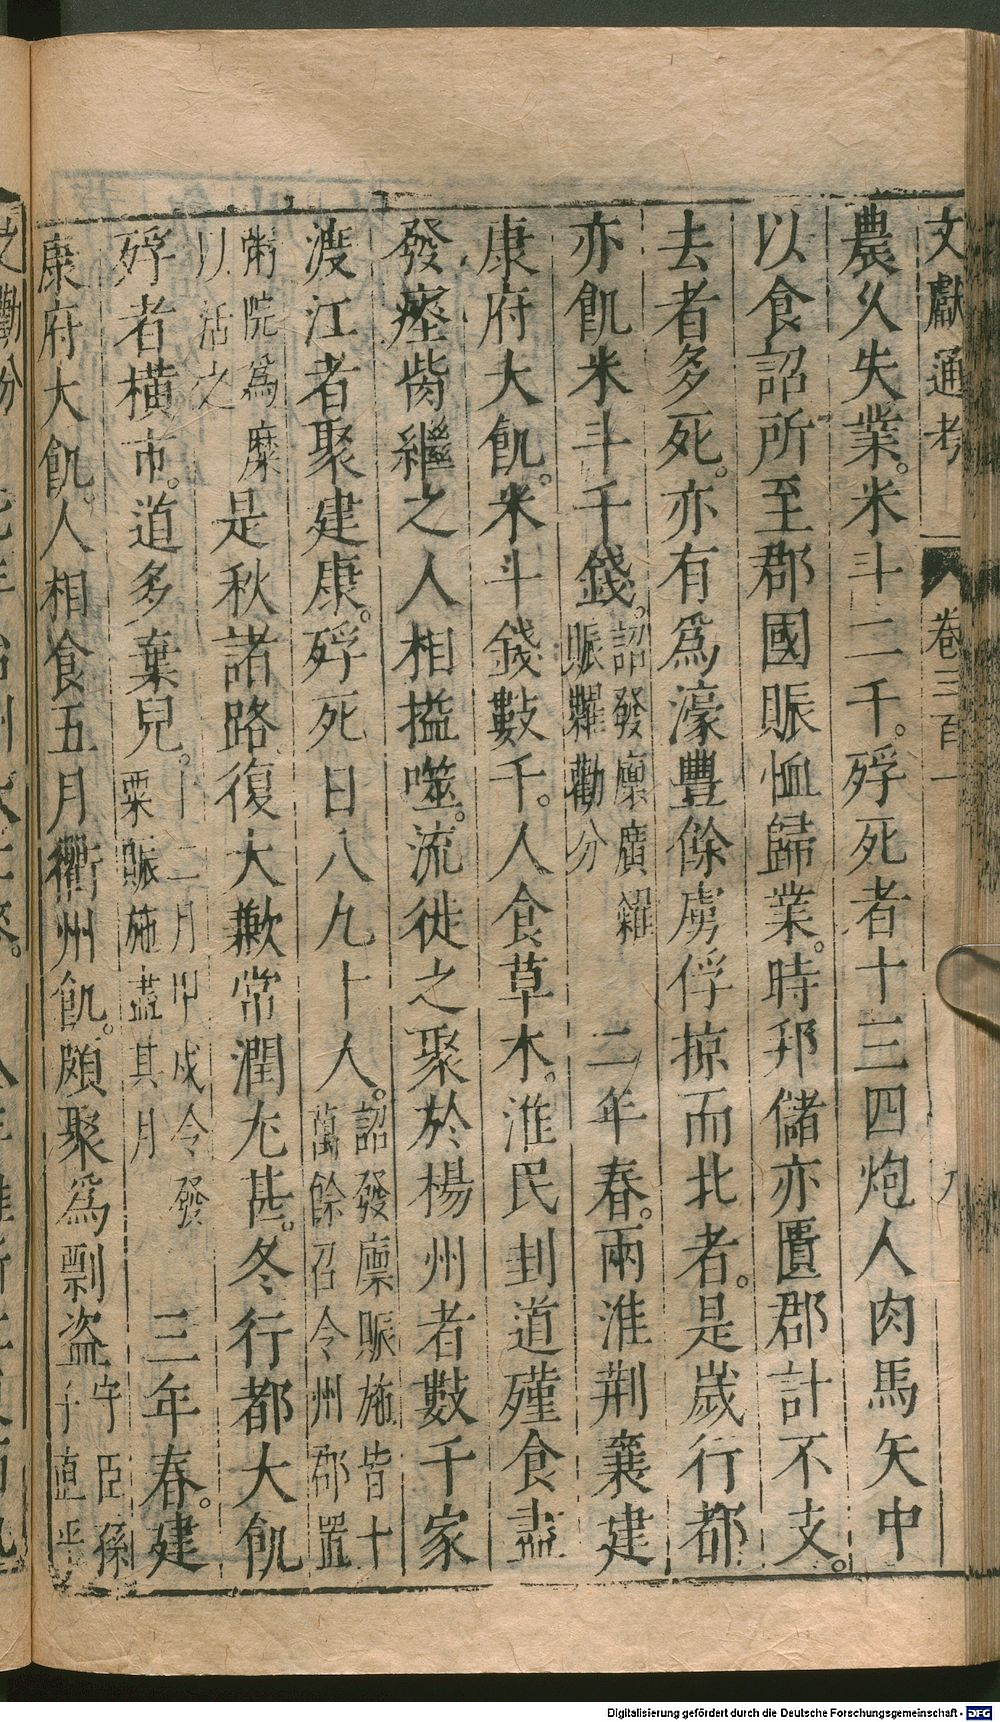 文獻通考 卷三百一 九
農久失業。米斗二千。殍死者十三四炮人肉馬矢中
以食詔所至郡國賑恤歸業。時邦儲亦匱郡計不支。
去者多死。亦有爲濠豐餘虜俘掠而北者。是歲行都
亦飢米斗千錢。詔發廩廣糴賑糶勸分 二年春。兩淮荆襄建
康府大飢。米斗錢數千。人食草木。淮民刲道殣食盡
發瘞胔繼之人相搤噬。流徙之聚於楊州者數千家
渡江者聚建康。殍死日八九十人。詔發廩賑施皆十萬餘召令州郡置
粥院爲糜以活之是秋諸路復大歉常潤尤甚。冬行都大飢
殍者橫市。道多棄兒。十二月甲戌令發粟賑施盡其月 三年春。建
康府大飢。人相食五月衢州飢。頗聚爲剽盜守臣孫子直平
Digitalisierung gefördert durch die Deutsche Forschungsgemeinschaft - DFG